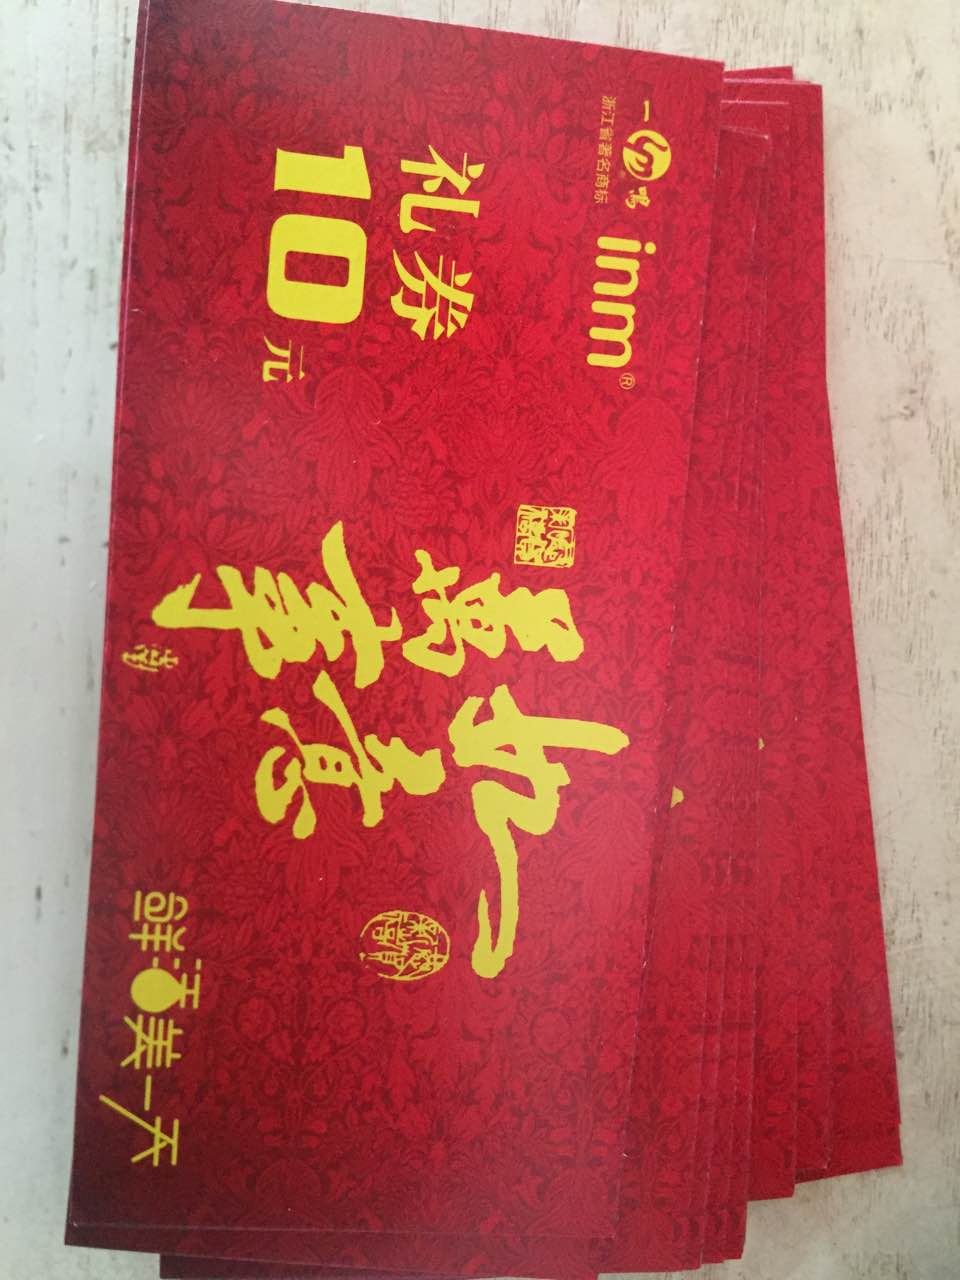 一鸣 inm®
浙江省著名商标
礼券
10元
萬事
如意
鲜活美一天